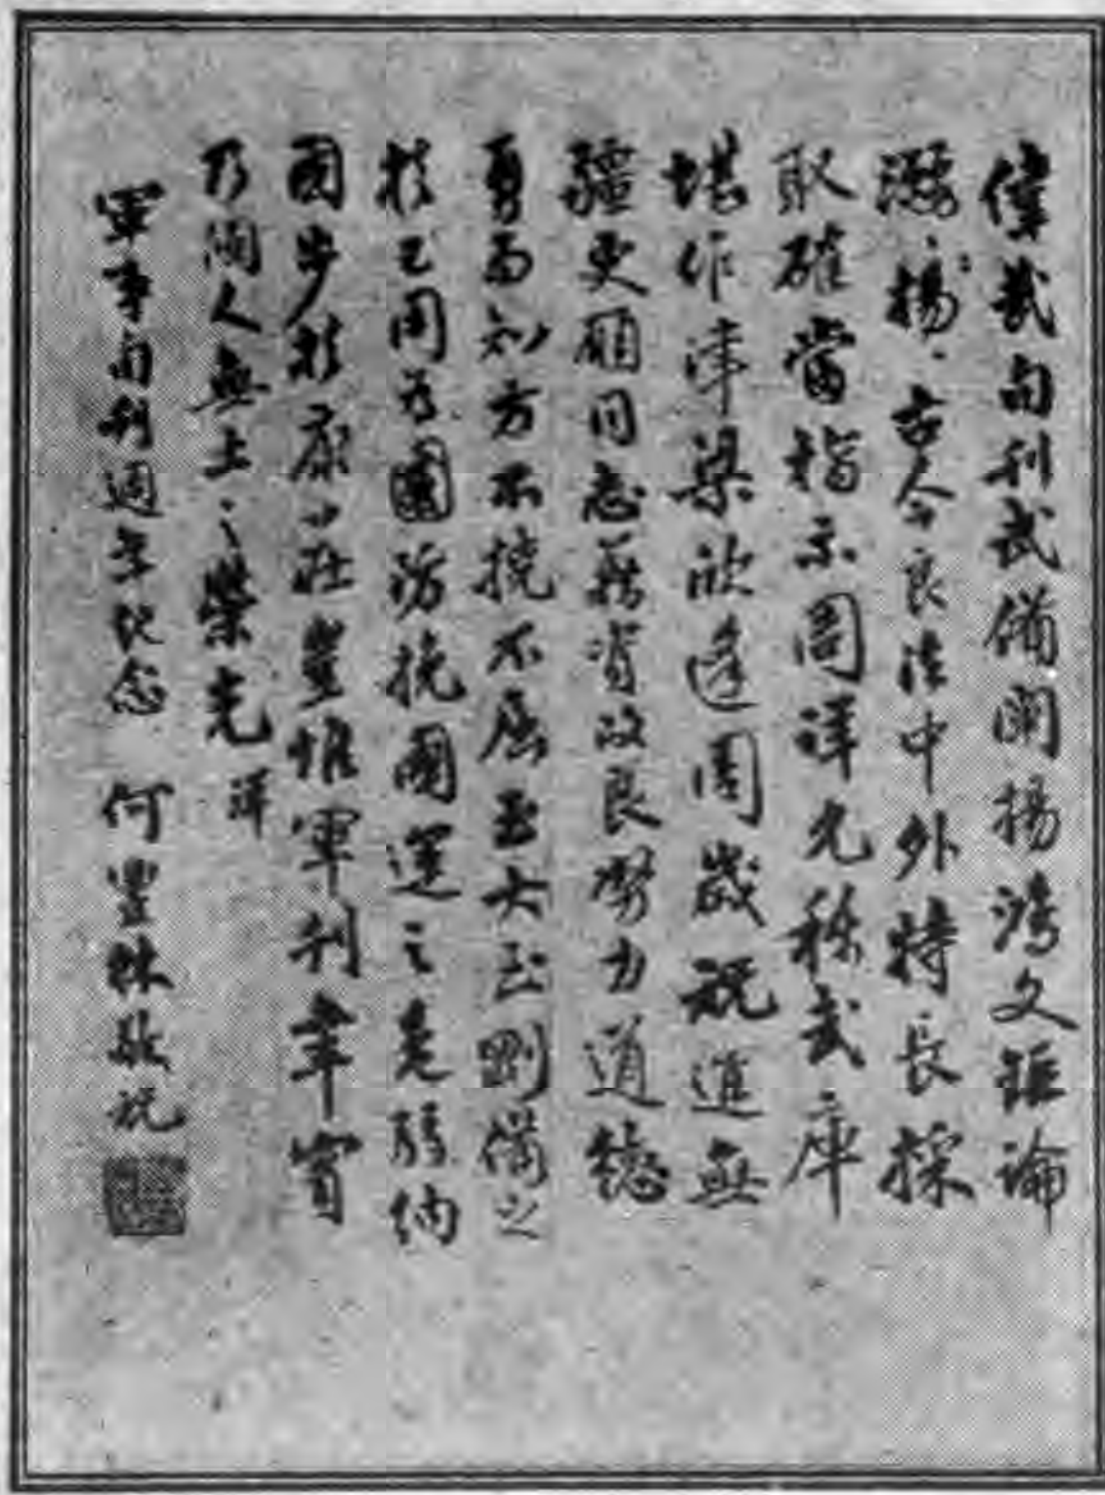 偉哉旬刊武備闡揚鴻文鉅論
灝灝揚揚古今良法中外特長採
取確當指示周詳允稱武庫
堪作津梁欣逢周歲祝進無
疆更願同志藉資改良努力道德
勇而知方不撓不屈至大至剛備之
於己用為國防挽國運之危臲納
國步於康莊豈惟軍刊年寶
乃闔人無上之榮光
軍事旬刊週年紀念 何豐林敬祝